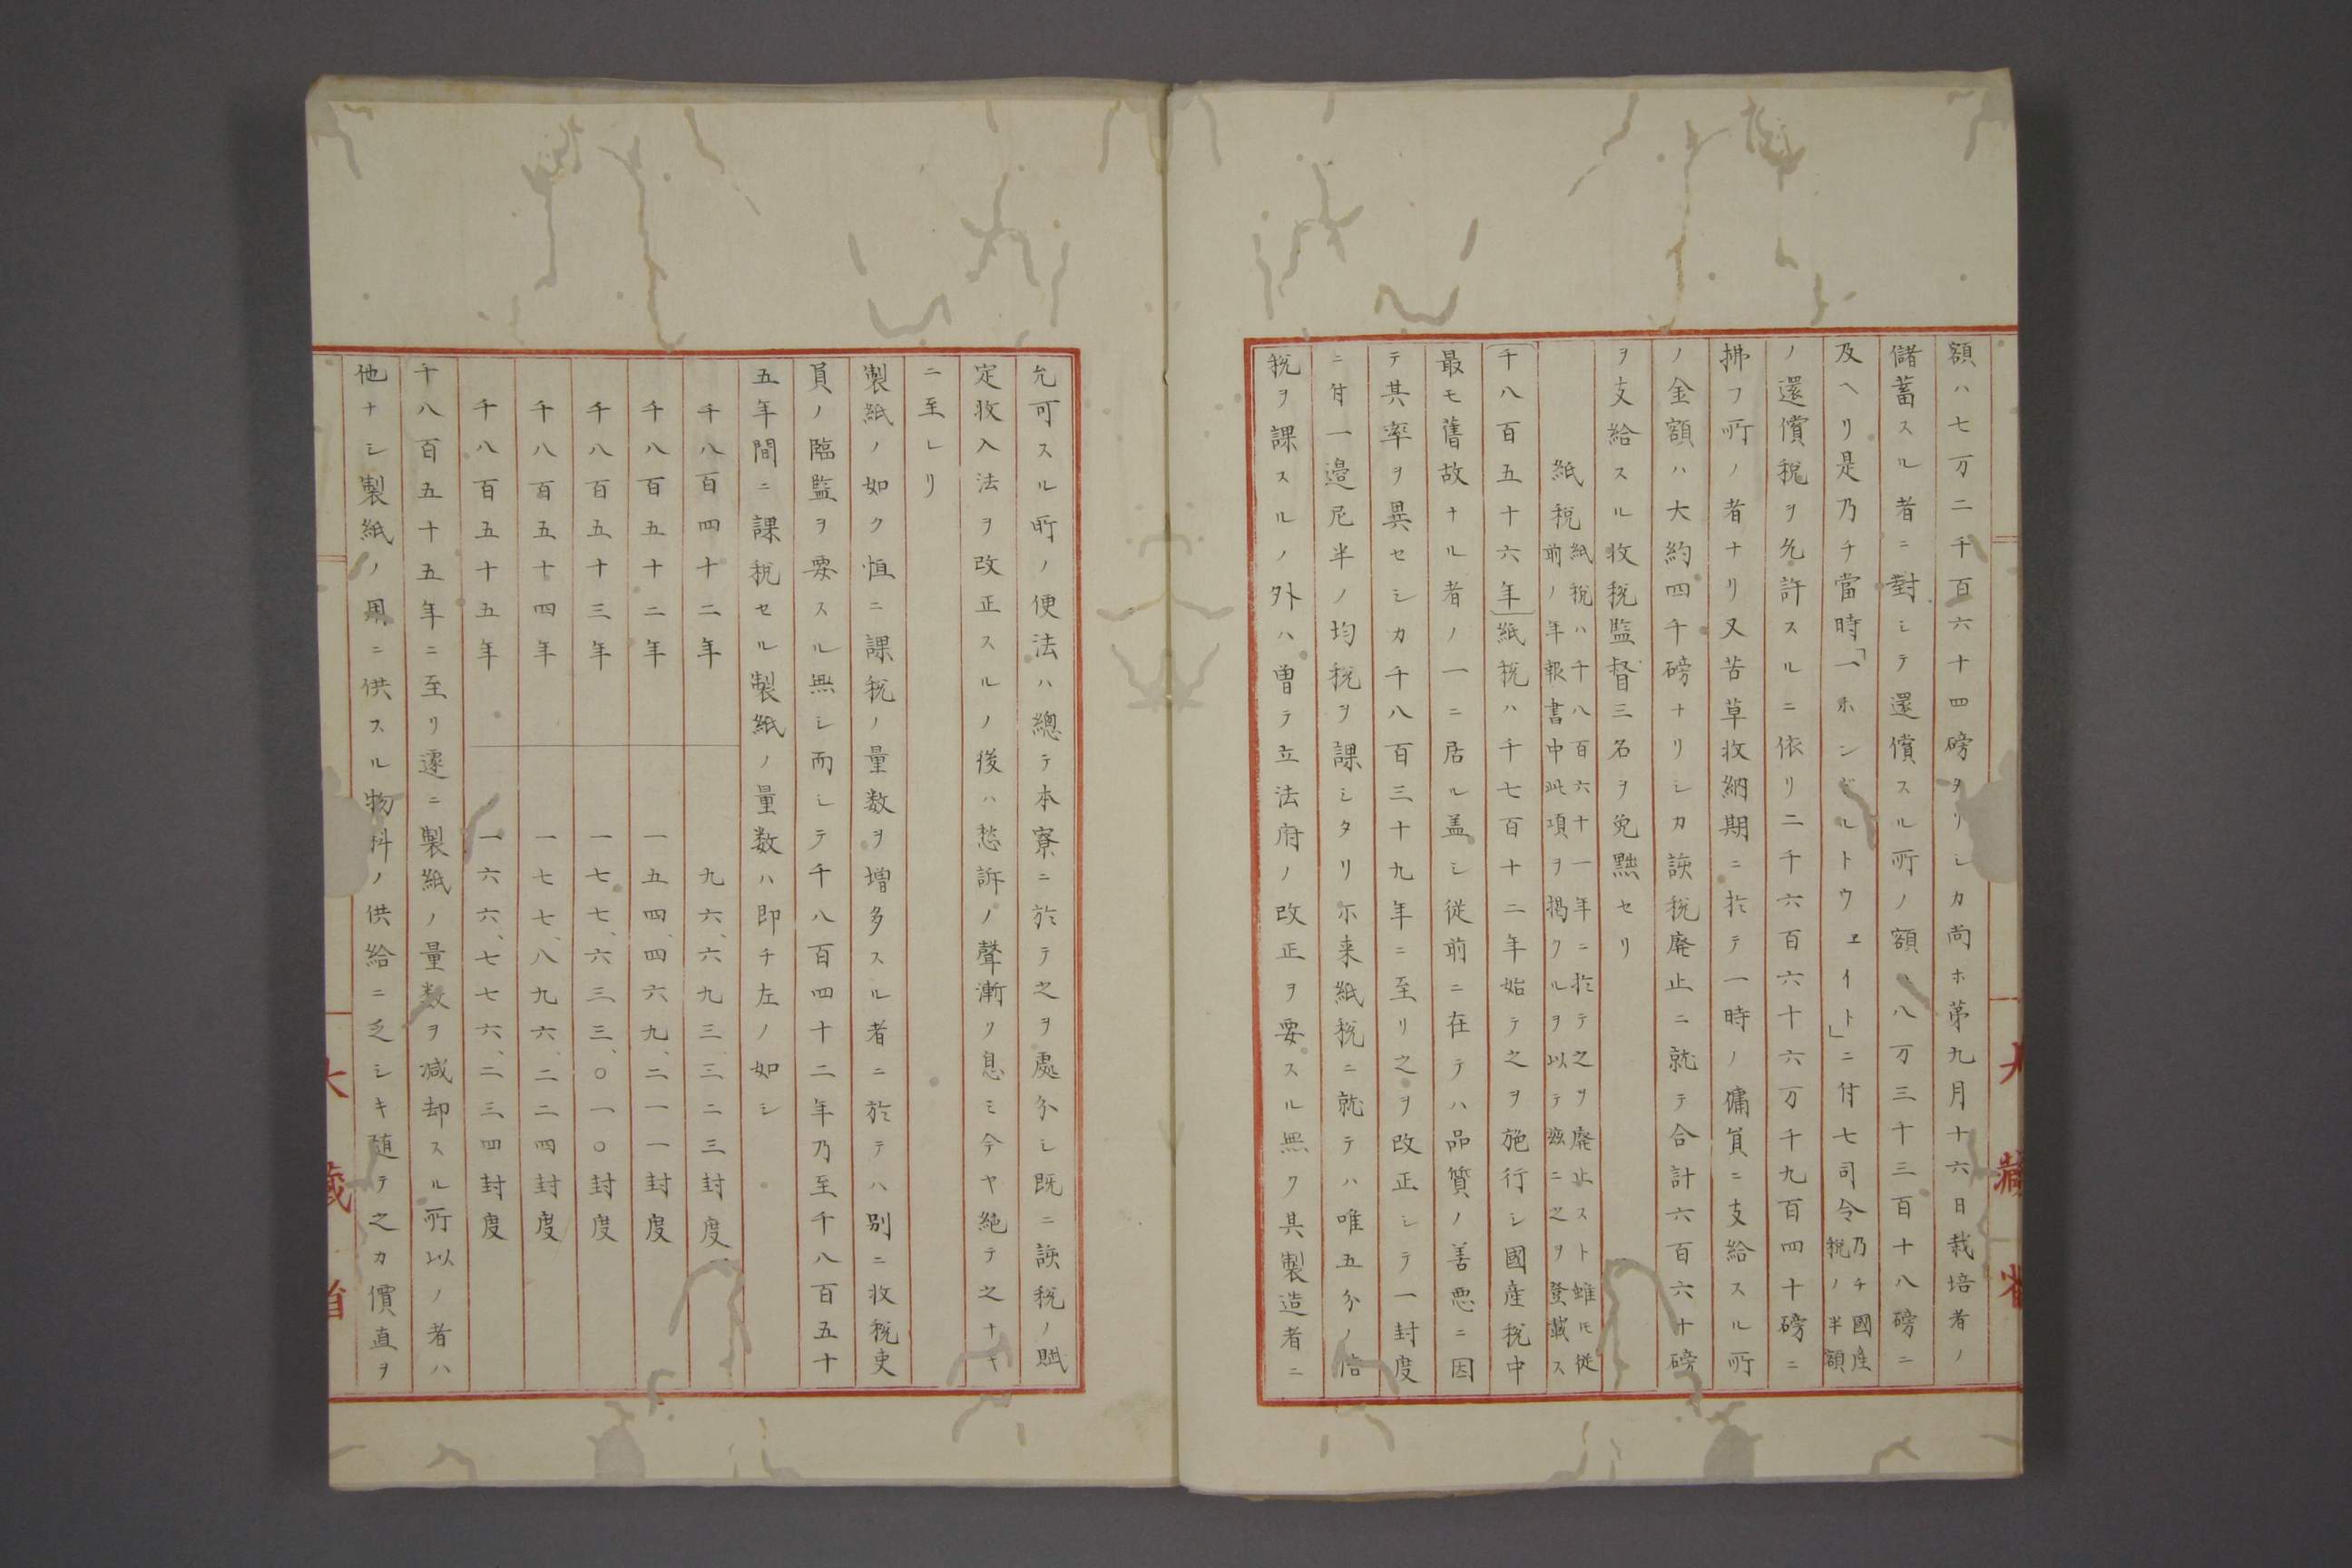 額ハ七万二千百六十四磅ヲリシカ尚ホ苐九月十六日栽培者ノ
儲蓄スル者ニ對シテ還償スル所ノ額ハ八万三千三百十八磅ニ
及ヘリ是乃チ當時「一ホンドルトウヱイト」ニ付七司令乃チ國産
税ノ半額
ノ還償税ヲ允許スルニ依リ二千六百六十六万千九百四十磅ニ
拂フ所ノ者ナリ又苦草收納期ニ於テ一時ノ傭員ニ支給スル所
ノ金額ハ大約四千磅ナリシカ該税廃止ニ就テ合計六百六十磅
ヲ支給スル收税監督三名ヲ免黜セリ
紙税紙税ハ千八百六十一年ニ於テ之ヲ廃止スト雖𪜈従
前ノ年報書中此項ヲ揭クルヲ以テ玆ニ之ヲ登載ス
〔千八百五十六年〕紙税ハ千七百十二年始テ之ヲ施行シ國産税中
最モ舊故ナル者ノ一ニ居ル盖シ従前ニ在テハ品質ノ善悪ニ因
テ其率ヲ異セシカ千八百三十九年ニ至リ之ヲ改正シテ一封度
ニ付一邉尼半ノ均税ヲ課シタリ尓来紙税ニ就テハ唯五分ノ倍
税ヲ課スルノ外ハ曽テ立法府ノ改正ヲ要スル無ク其製造者ニ
大藏省
允可スル所ノ便法ハ總テ本寮ニ於テ之ヲ處分シ既ニ該税ノ賦
定收入法ヲ改正スルノ後ハ愁訴ノ聲漸ク息ミ今ヤ絶テ之ナキ
ニ至レリ
製紙ノ如ク恒ニ課税ノ量数ヲ増多スル者ニ於テハ別ニ收税吏
員ノ臨監ヲ要スル無シ而シテ千八百四十二年乃至千八百五十
五年間ニ課税セル製紙ノ量数ハ即チ左ノ如シ
千八百四十二年 九六、六九三、三二三封度
千八百五十二年 一五四、四六九、二一一封度
千八百五十三年 一七七、六三三、〇一〇封度
千八百五十四年 一七七、八九六、二二四封度
千八百五十五年 一六六、七七六、二三四封度
千八百五十五年ニ至リ遽ニ製紙ノ量数ヲ减却スル所以ノ者ハ
他ナシ製紙ノ用ニ供スル物料ノ供給ニ乏シキ随テ之カ價直ヲ
大藏省